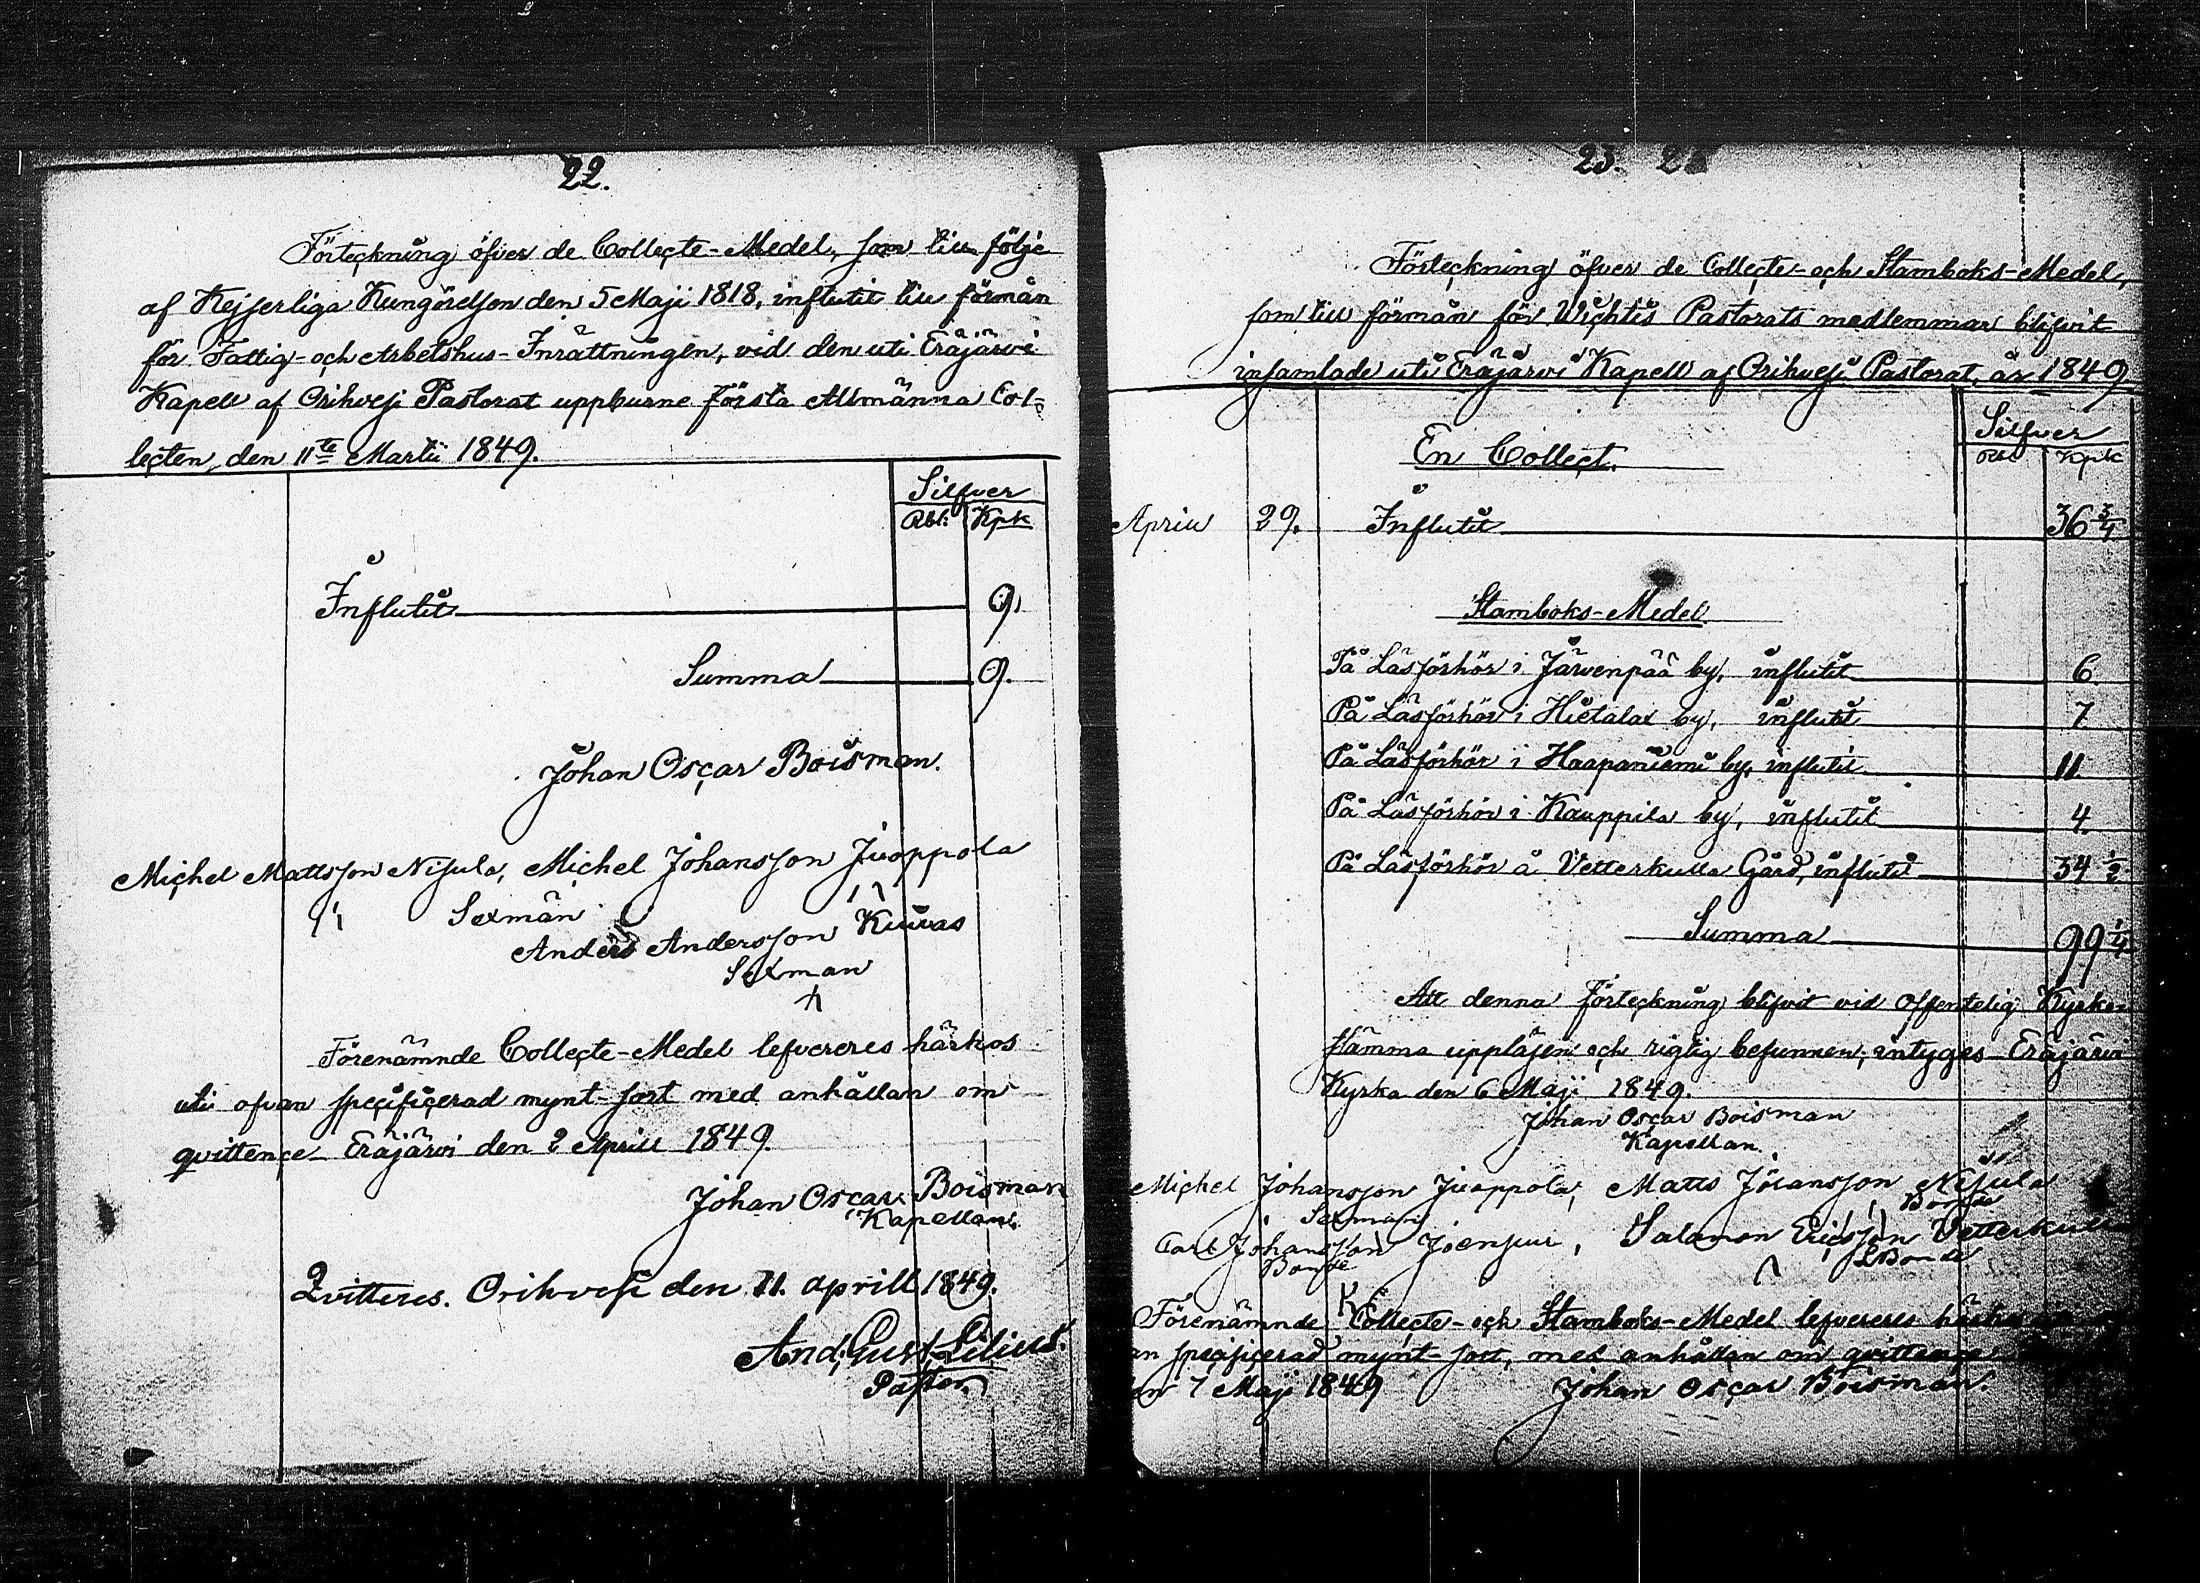 22.
Förteckning öfver de Collecte-Medel, som till följe
af Kejserliga Kungörelsen den 5 Maji 1818, influtit till förmån
för Fattig- och Arbetshus-Inrättningen, vid den uti Eräjärvi
Kapell af Orihvesi Pastorat uppburne första Allmänna Col-
lecten, den 11te Martii 1849.
Silfver
Rbl: Kpk
Influtit 9.
Summa 9.
Johan Oscar Boisman.
Michel Mattsson Nisula, Michel Johansson Juoppola
Sexmän
Anders Andersson Kuivas
Sexman
Förenämnde Collecte-Medel lefvereres härhos
uti ofvan specificerad mynt-sort med anhållan om
qvittence. Eräjärvi den 2 Aprill 1849.
Johan Oscar Boisman
Kapellan.
Qvitteres. Orihvesi den 11. aprill 1849.
And. Gust. Lilius.
Pastor.
23.
Förteckning öfver de Collecte- och Stamboks-Medel,
som till förmån för Wichtis Pastorats medlemmar blifvit
insamlade uti Eräjärvi Kapell af Orihvesi Pastorat, år 1849
Silfver
Rbl Kpk
En Collect.
Aprill 29. Influtit 36 3/4
Stamboks-Medel
På Läsförhör i Järvenpää by, influtit 6.
På Läsförhör i Hietalax by, influtit 7
På Läsförhör i Haapaniemi by, influtit 11.
På Läsförhör i Kauppila by, influtit 4.
På Läsförhör å Vetterkulla Gård, influtit 34 1/2
Summa 99 1/4
Att denna förteckning blifvit vid offentelig Kyrko-
stämma uppläsen och rigtig befunnen, intyges. Eräjärvi
Kyrka den 6 Maji 1849.
Johan Oscar Boisman
Kapellan.
Michel Johansson Juoppola, Matts Jöransson Nisula
Sexman Bonde
Carl Johansson Joensuu, Salamon Ericsson Vetterkulla
Bonde Bonde
Förenämnde Collecte- och Stamboks-Medel lefvereres
an specificerad mynt-sort, med anhållan om qvittence
en 7 Maji 1849 Johan Oscar Boisman.